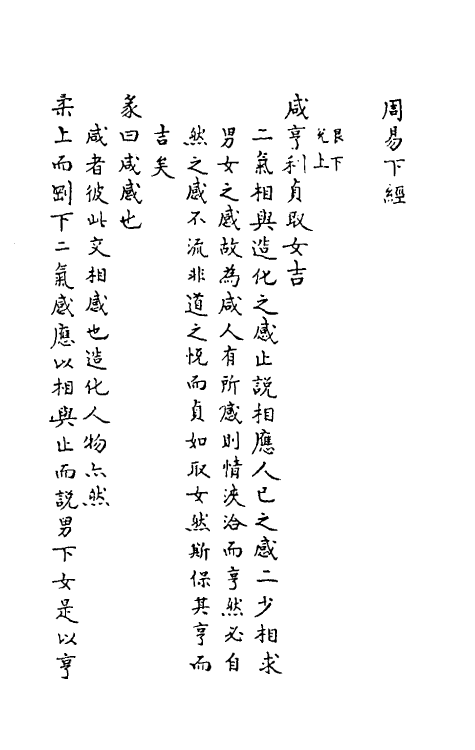 周易下經
艮下
兌上
咸亨利貞取女吉
二氣相與造化之感止說相應人已之感二少相求
男女之感故為咸人有所感則情浹洽而亨然必自
然之感不流非道之悅而貞如取女然斯保其亨而
吉矣
彖曰咸感也
咸者彼此交相感也造化人物亦然
柔上而剛下二氣感應以相與止而說男下女是以亨